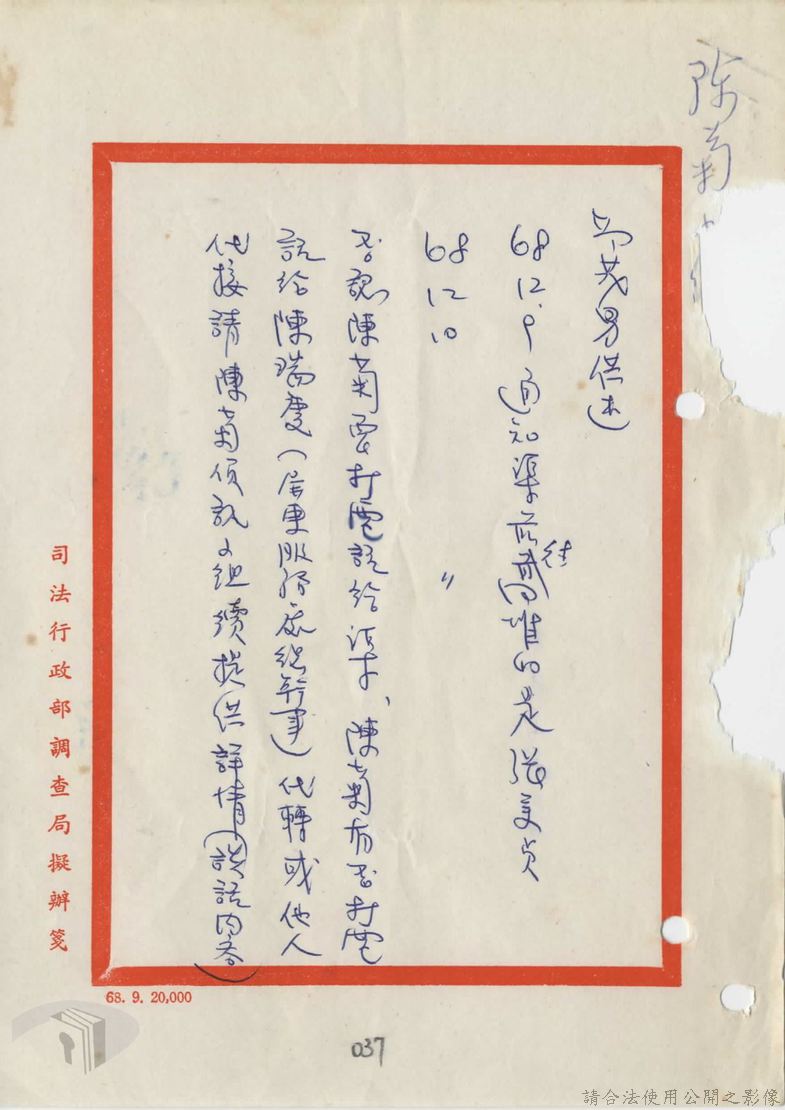 陳菊
邱茂男供述
68.12.9通知渠前往高雄的是張美貞
68 12 10 〃
否認陳菊要打電話給渠、陳菊有否打電
話給陳瑞慶(屏東服務處總幹事)代轉或他人
代接請陳菊偵訊組續提供詳情(談話內容)
司法行政部調查局擬辦箋
68. 9. 20,000
037
請合法使用公開之影像